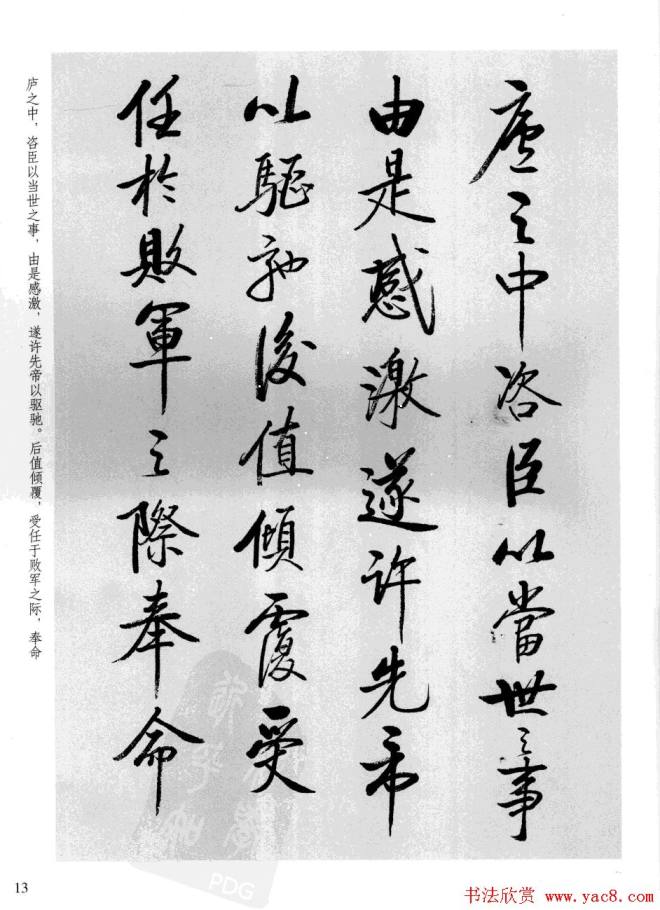 廬之中咨臣以當世之事
由是感激遂许先帝
以驅馳後值傾覆受
任於敗軍之際奉命
庐之中，咨臣以当世之事，由是感激，遂许先帝以驱驰。后值倾覆，受任于败军之际，奉命
PDG
13
书法欣赏 www.yac8.com